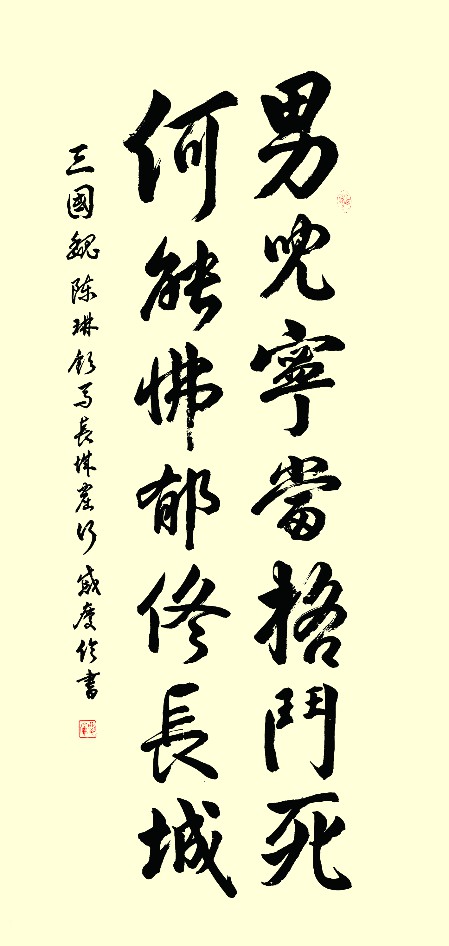 男兒寧當格鬥死
何能怫郁修長城
三國魏陈琳飲馬長城窟行 戚慶倫書